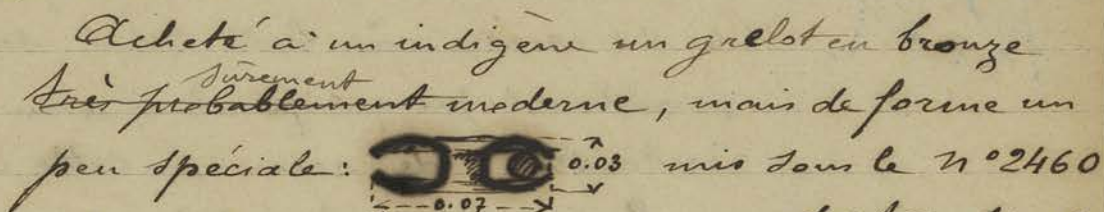 Acheté à un indigène un grelot en bronze
sûrement
très probablement moderne, mais de forme un
peu spéciale : 0.03 mis sous le n° 2460
0.07